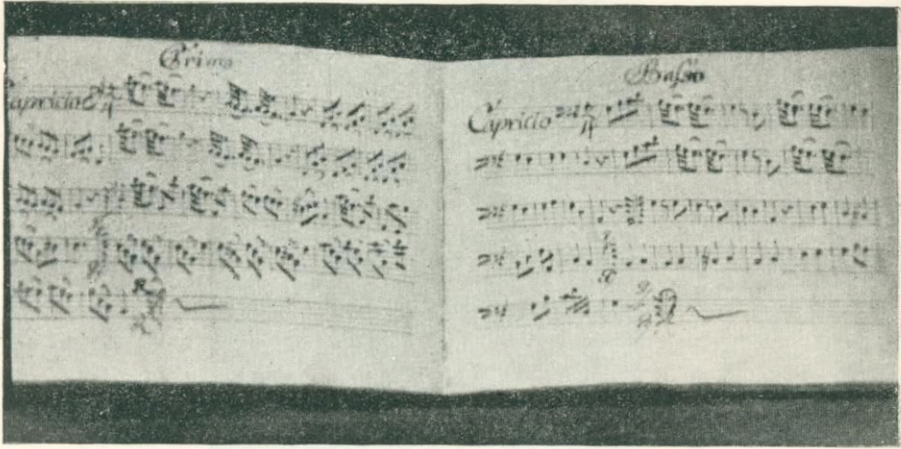 Primo
Capricio
2/4
Basso
Capricio
2/4